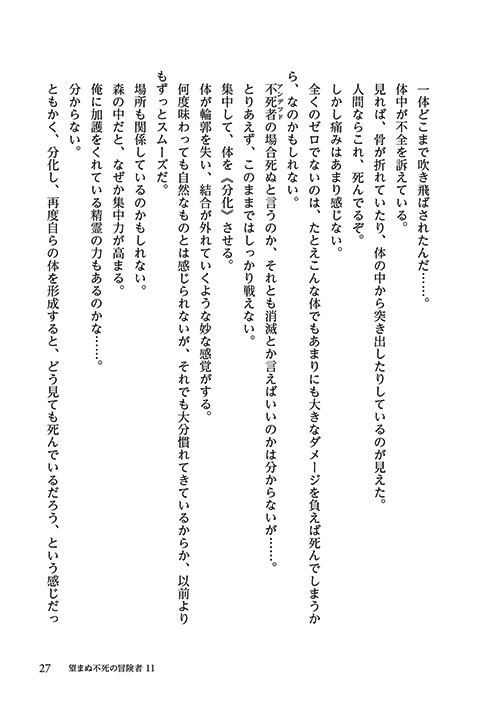 一体どこまで吹き飛ばされたんだ……。
体中が不全を訴えている。
見れば、骨が折れていたり、体の中から突き出したりしているのが見えた。
人間ならこれ、死んでるぞ。
しかし痛みはあまり感じない。
全くのゼロでないのは、たとえこんな体でもあまりにも大きなダメージを負えば死んでしまうか
ら、なのかもしれない。
アンデッド
不死者の場合死ぬと言うのか、それとも消滅とか言えばいいのかは分からないが……。
とりあえず、このままではしっかり戦えない。
集中して、体を《分化》させる。
体が輪郭を失い、結合が外れていくような妙な感覚がする。
何度味わっても自然なものとは感じられないが、それでも大分慣れてきているからか、以前より
もずっとスムーズだ。
場所も関係しているのかもしれない。
森の中だと、なぜか集中力が高まる。
俺に加護をくれている精霊の力もあるのかな……。
分からない。
ともかく、分化し、再度自らの体を形成すると、どう見ても死んでいるだろう、という感じだっ
27 望まぬ不死の冒険者 11